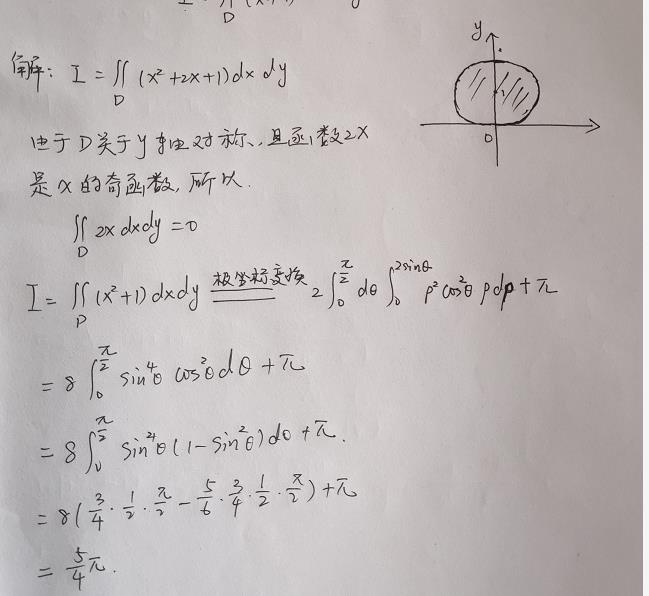 D
解: I = ∬ (x²+2x+1) dx dy
D
由于 D 关于 y 轴对称, 且函数 2x
是 x 的奇函数, 所以.
∬ 2x dx dy = 0
D
I = ∬ (x²+1) dx dy 极坐标变换 2 ∫₀^{π/2} dθ ∫₀^{2sinθ} ρ² cos²θ ρ dρ + π
D
= 8 ∫₀^{π/2} sin⁴θ cos²θ dθ + π
= 8 ∫₀^{π/2} sin⁴θ (1 - sin²θ) dθ + π.
= 8 ( 3/4 · 1/2 · π/2 - 5/6 · 3/4 · 1/2 · π/2 ) + π
= 5/4 π.
y
0